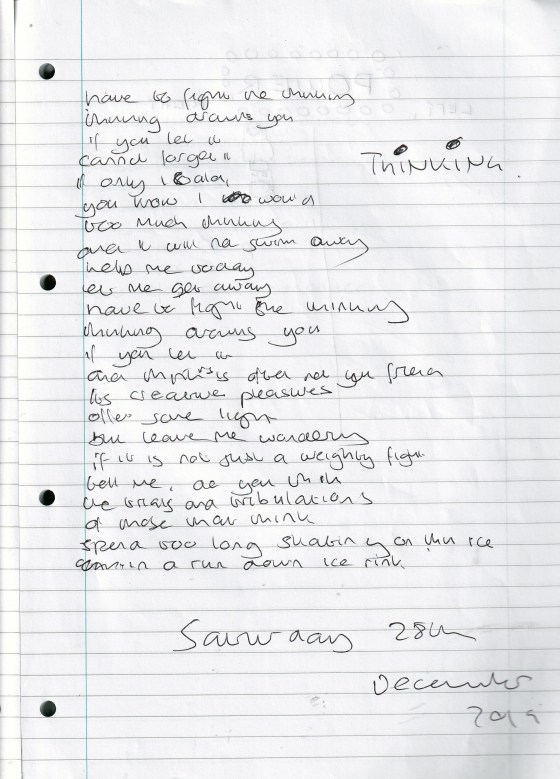 have to fight the thinking
thinking drowns you
if you let it
cannot forget it
THINKING.
if only I could,
you know I would
too much thinking
and it will not swim away
help me today
let me get away
have to fight the thinking
thinking drowns you
if you let it
and is often not your friend
its creative pleasures
offer some light
but leave me wondering
if it is not just a weighty fight
tell me, do you think
the trials and tribulations
of those that think
spend too long skating on thin ice
a run down ice rink
Saturday 28th
December
2019